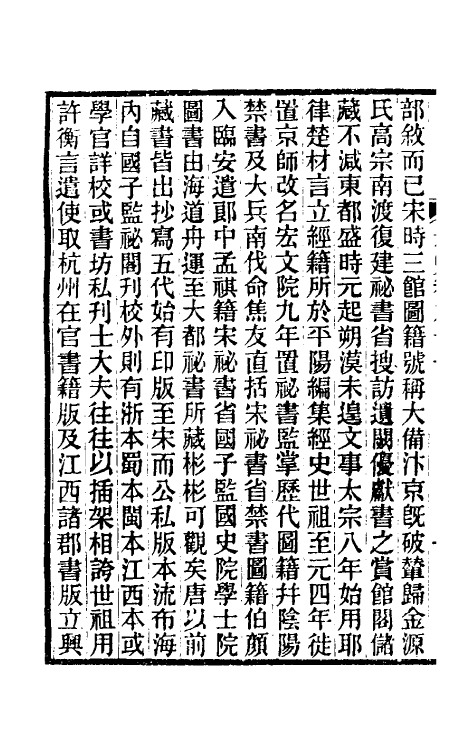 部敘而已宋時三館圖籍號稱大備汴京旣破輦歸金源
氏高宗南渡復建祕書省搜訪遺闕優獻書之賞館閣儲
藏不減東都盛時元起朔漠未遑文事太宗八年始用耶
律楚材言立經籍所於平陽編集經史世祖至元四年徙
置京師改名宏文院九年置祕書監掌歷代圖籍幷陰陽
禁書及大兵南伐命焦友直括宋祕書省禁書圖籍伯顏
入臨安遣郞中孟祺籍宋祕書省國子監國史院學士院
圖書由海道舟運至大都祕書所藏彬彬可觀矣唐以前
藏書皆出抄寫五代始有印版至宋而公私版本流布海
內自國子監祕閣刊校外則有浙本蜀本閩本江西本或
學官詳校或書坊私刊士大夫往往以插架相誇世祖用
許衡言遣使取杭州在官書籍版及江西諸郡書版立興